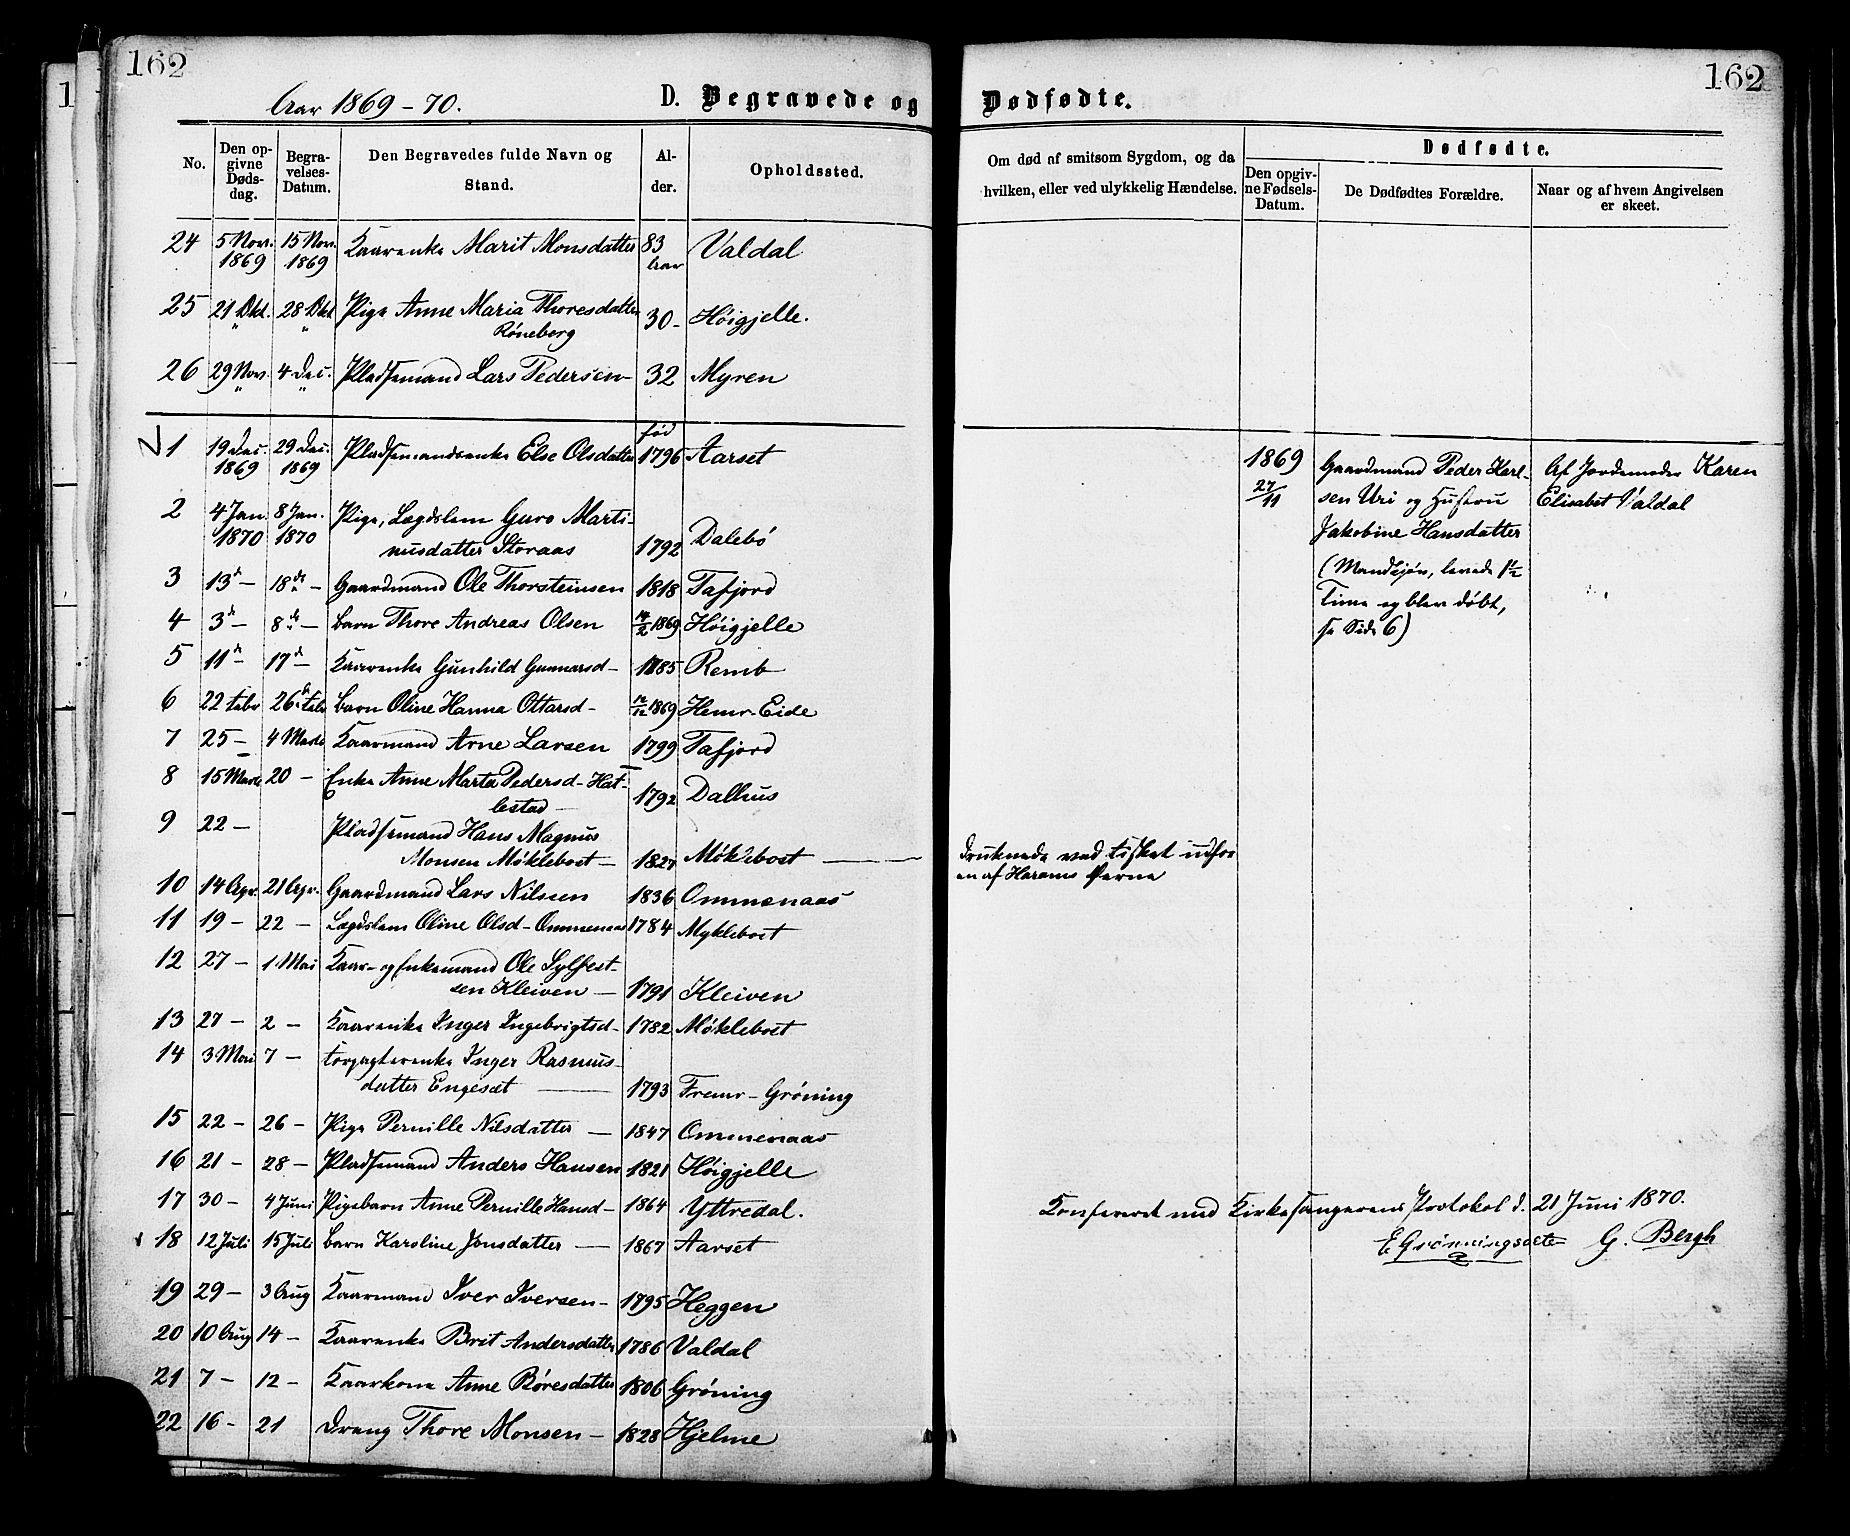 162
Aar 1869-70.
D. Begravede og
No.
Den opgivne Dødsdag.
Begravelses-Datum.
Den Begravedes fulde Navn og Stand.
Alder.
Opholdssted.
24 5 Nov. 1869 15 Nov. 1869 Kaarenke Marit Monsdatter 83 Aar Valdal
25 21 Okt. " 28 Okt " Pige Anne Maria Thoresdatter Røneberg 30- Høigjelle.
26 29 Nov. " 4 Dec. " Pladsemand Lars Pedersen- 32 Myren
1 19 Dec. 1869 29 Dec. 1869 Pladsemandsenke Else Olsdatter fød 1796 Aarset
2 4 Jan. 1870 8 Jan. 1870 Pige, Lægdslem Guro Martinusdatter Storaas 1792 Dalebø
3 13 d - 18 de - Gaardmand Ole Thorsteinsen 1818 Tafjord
4 3 d - 8 de - Barn Thore Andreas Olsen 1869 Høigjelle
5 11 d - 17 d - Kaarenke Gunhild Gunnarsd- 1785 Remb
6 22 Febr 26 Febr Barn Oline Hanna Ottarsd- 1869 Hemr-Eide
7 25- 4 Marts Kaarmand Arne Larsen 1799 Tafjord
8 15 Marts 20 - Enke Anne Marta Pedersd- Hatlestad 1792 Dalhus
9 22- Pladsemand Hans Magnus Monsen Møklebost- 1827 Møklebost
10 14 Apr. 21 Apr. Gaardmand Lars Nilssen 1836 Ommenaas
11 19- 22- Lægdslem Oline Olsd- Ommenaas 1784 Myklebost
12 27- 1 Mai Kaar- og Enkemand Ole Sylfestsen Kleiven- 1791 Kleiven
13 27- 2- Kaarenke Inger Ingebrigtsd- 1782 Møklebost
14 3 Mai 7- Forpagterenke Inger Rasmusdatter Engeset 1793 Fremr-Grøning
15 22- 26- Pige Pernille Nilsdatter - 1847 Ommenaas
16 21- 28- Pladsemand Anders Hansen 1821 Høigjelle
17 30- 4 Juni Pigebarn Anne Pernille Hansd- 1864 Yttredal.
18 12 Juli 15 Juli Barn Karoline Jonsdatter - 1867 Aarset
19 29- 3 Aug Kaarmand Iver Iversen- 1795 Heggen
20 10 Aug 14- Kaarenke Brit Andersdatter 1786 Valdal
21 7- 12- Kaarkone Anne Røresdatter 1806 Grøning
22 16- 21 Dreng Thore Monsen- 1828 Hjelme
162
Dødfødte.
Om død af smitsom Sygdom, og da
hvilken, eller ved ulykkelig Hændelse.
Dødfødte.
Den opgivne Fødsels-Datum.
De Dødfødtes Forældre.
Naar og af hvem Angivelsen
er skeet.
1869
27/11
Gaardmand Peder Karl-
sen Uri og Hustru
Jakobine Hansdatter
(Mandkjøn, levede 1½
Time og blev døbt,
se Side 6)
Af Jordemoder Karen
Elisabet Valdal
druknede ved Fisket udfor
en af Harams Øerne
Konfereret med Kirkesangerens Protokol d. 21 Juni 1870.
E Grønningsæter G. Bergh